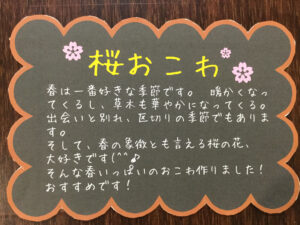 桜おこわ
春は一番好きな季節です。 暖かくなっ
てくるし、草木も華やかになってくる。
出会いと別れ、区切りの季節でもありま
す。
そして、春の象徴とも言える桜の花、
大好きです(^^♪
そんな春いっぱいのおこわ作りました!
おすすめです!